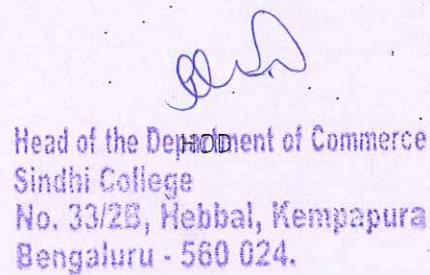 Head of the Department of Commerce
HOD
Sindhi College
No. 33/2B, Hebbal, Kempapura
Bengaluru - 560 024.